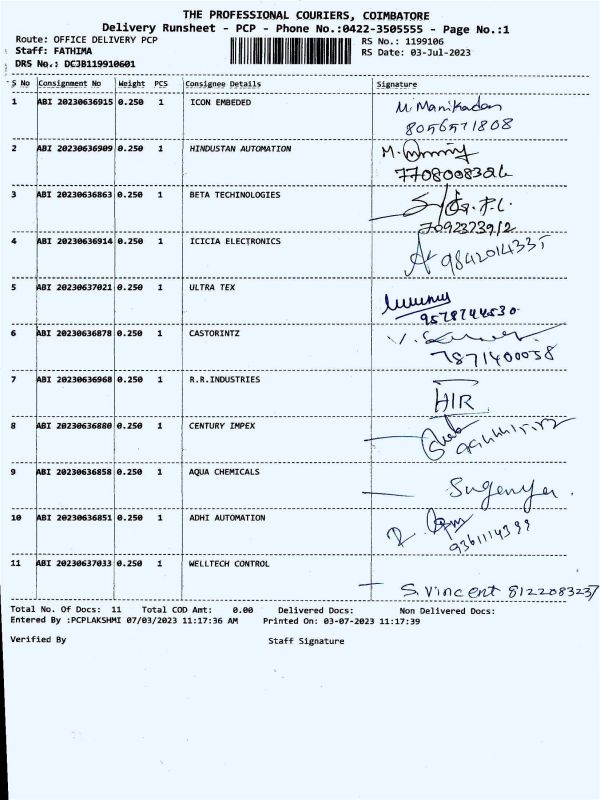 THE PROFESSIONAL COURIERS, COIMBATORE
Delivery Runsheet - PCP - Phone No.:0422-3505555 - Page No.:1
Route: OFFICE DELIVERY PCP
RS No.: 1199106
Staff: FATHIMA
RS Date: 03-Jul-2023
DRS No.: DCJB119910601
S No Consignment No Weight PCS Consignee Details Signature
1 ABI 20230636915 0.250 1 ICON EMBEDED M. Manikadan
8056571808
2 ABI 20230636909 0.250 1 HINDUSTAN AUTOMATION M.
3 ABI 20230636863 0.250 1 BETA TECHINOLOGIES
7092373912
4 ABI 20230636914 0.250 1 ICICIA ELECTRONICS
9842014335
5 ABI 20230637021 0.250 1 ULTRA TEX
9578744530
6 ABI 20230636878 0.250 1 CASTORINTZ V.
7871400038
7 ABI 20230636968 0.250 1 R.R.INDUSTRIES
HIR
8 ABI 20230636880 0.250 1 CENTURY IMPEX
9 ABI 20230636858 0.250 1 AQUA CHEMICALS
Sugenya.
10 ABI 20230636851 0.250 1 ADHI AUTOMATION
9361114399
11 ABI 20230637033 0.250 1 WELLTECH CONTROL
S. Vincent 8122083237
Total No. Of Docs: 11 Total COD Amt: 0.00 Delivered Docs: Non Delivered Docs:
Entered By :PCPLAKSHMI 07/03/2023 11:17:36 AM Printed On: 03-07-2023 11:17:39
Verified By Staff Signature